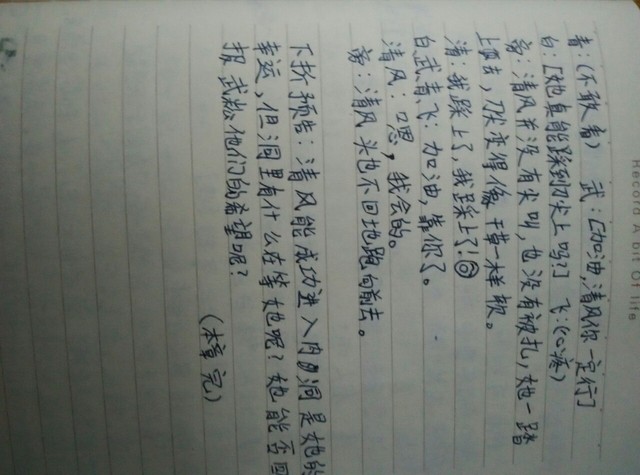 Record A Bit Of life
青：(不敢看) 武：[加油,清风你一定行]
白：[她真能踩到刀尖上吗?] 飞：(心疼)
旁：清风并没有尖叫，也没有被扎，她一踏
上去，刀尖变得像干草一样软。
清：我踩上了，我踩上了!
白武青飞：加油，靠你了。
清风：嗯，我会的。
旁：清风头也不回地跑向前去。
下折预告：清风能成功进入内洞是她的
幸运，但洞里有什么在等她呢？她能否回
报武他们的希望呢？
(本章完)